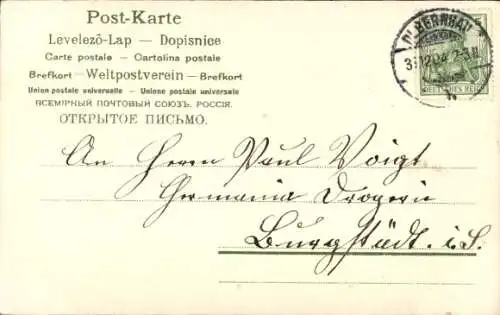 Post-Karte
Levelező-Lap — Dopisnice
Carte postale — Cartolina postale
Brefkort — Weltpostverein — Brefkort
Union postale universelle — Unione postale universale
ВСЕМІРНЫЙ ПОЧТОВЫЙ СОЮЗЪ. РОССІЯ.
ОТКРЫТОЕ ПИСЬМО.
OLBERNHAU
31.12.04
DEUTSCHES REICH
An Herrn Paul Voigt
Germania Drogerie
Burgstädt i. S.